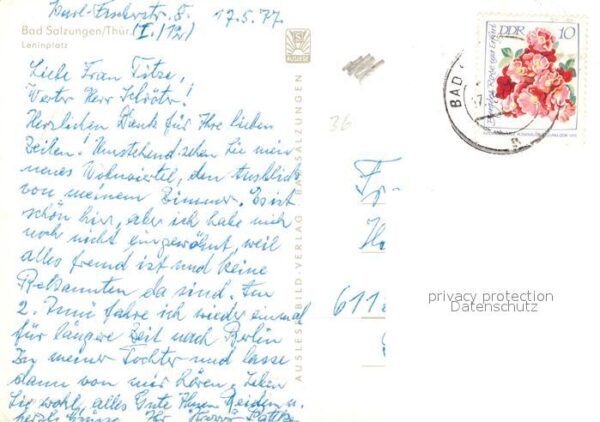 17.5.77
Bad Salzungen/Thür. (I./12)
Leninplatz
Liebe Frau Titze,
Werter Herr Schröter!
Herzlichen Dank für Ihre lieben
Zeilen! Umstehend sehen Sie mein
neues Wohnviertel, den Ausblick
von meinem Zimmer. Es ist
schön hier, aber ich habe mich
noch nicht eingewöhnt, weil
alles fremd ist und keine
Bekannten da sind. Am
2. Juni fahre ich wieder einmal
für längere Zeit nach Berlin
zu meiner Tochter und lasse
dann von mir hören. Leben
Sie wohl, alles Gute Ihnen Beiden u.
herzl. Grüsse Ihr
AUSLESE
AUSLESE-BILD-VERLAG BAD SALZUNGEN
36
DDR 10
BAD
Fr
611
privacy protection
Datenschutz